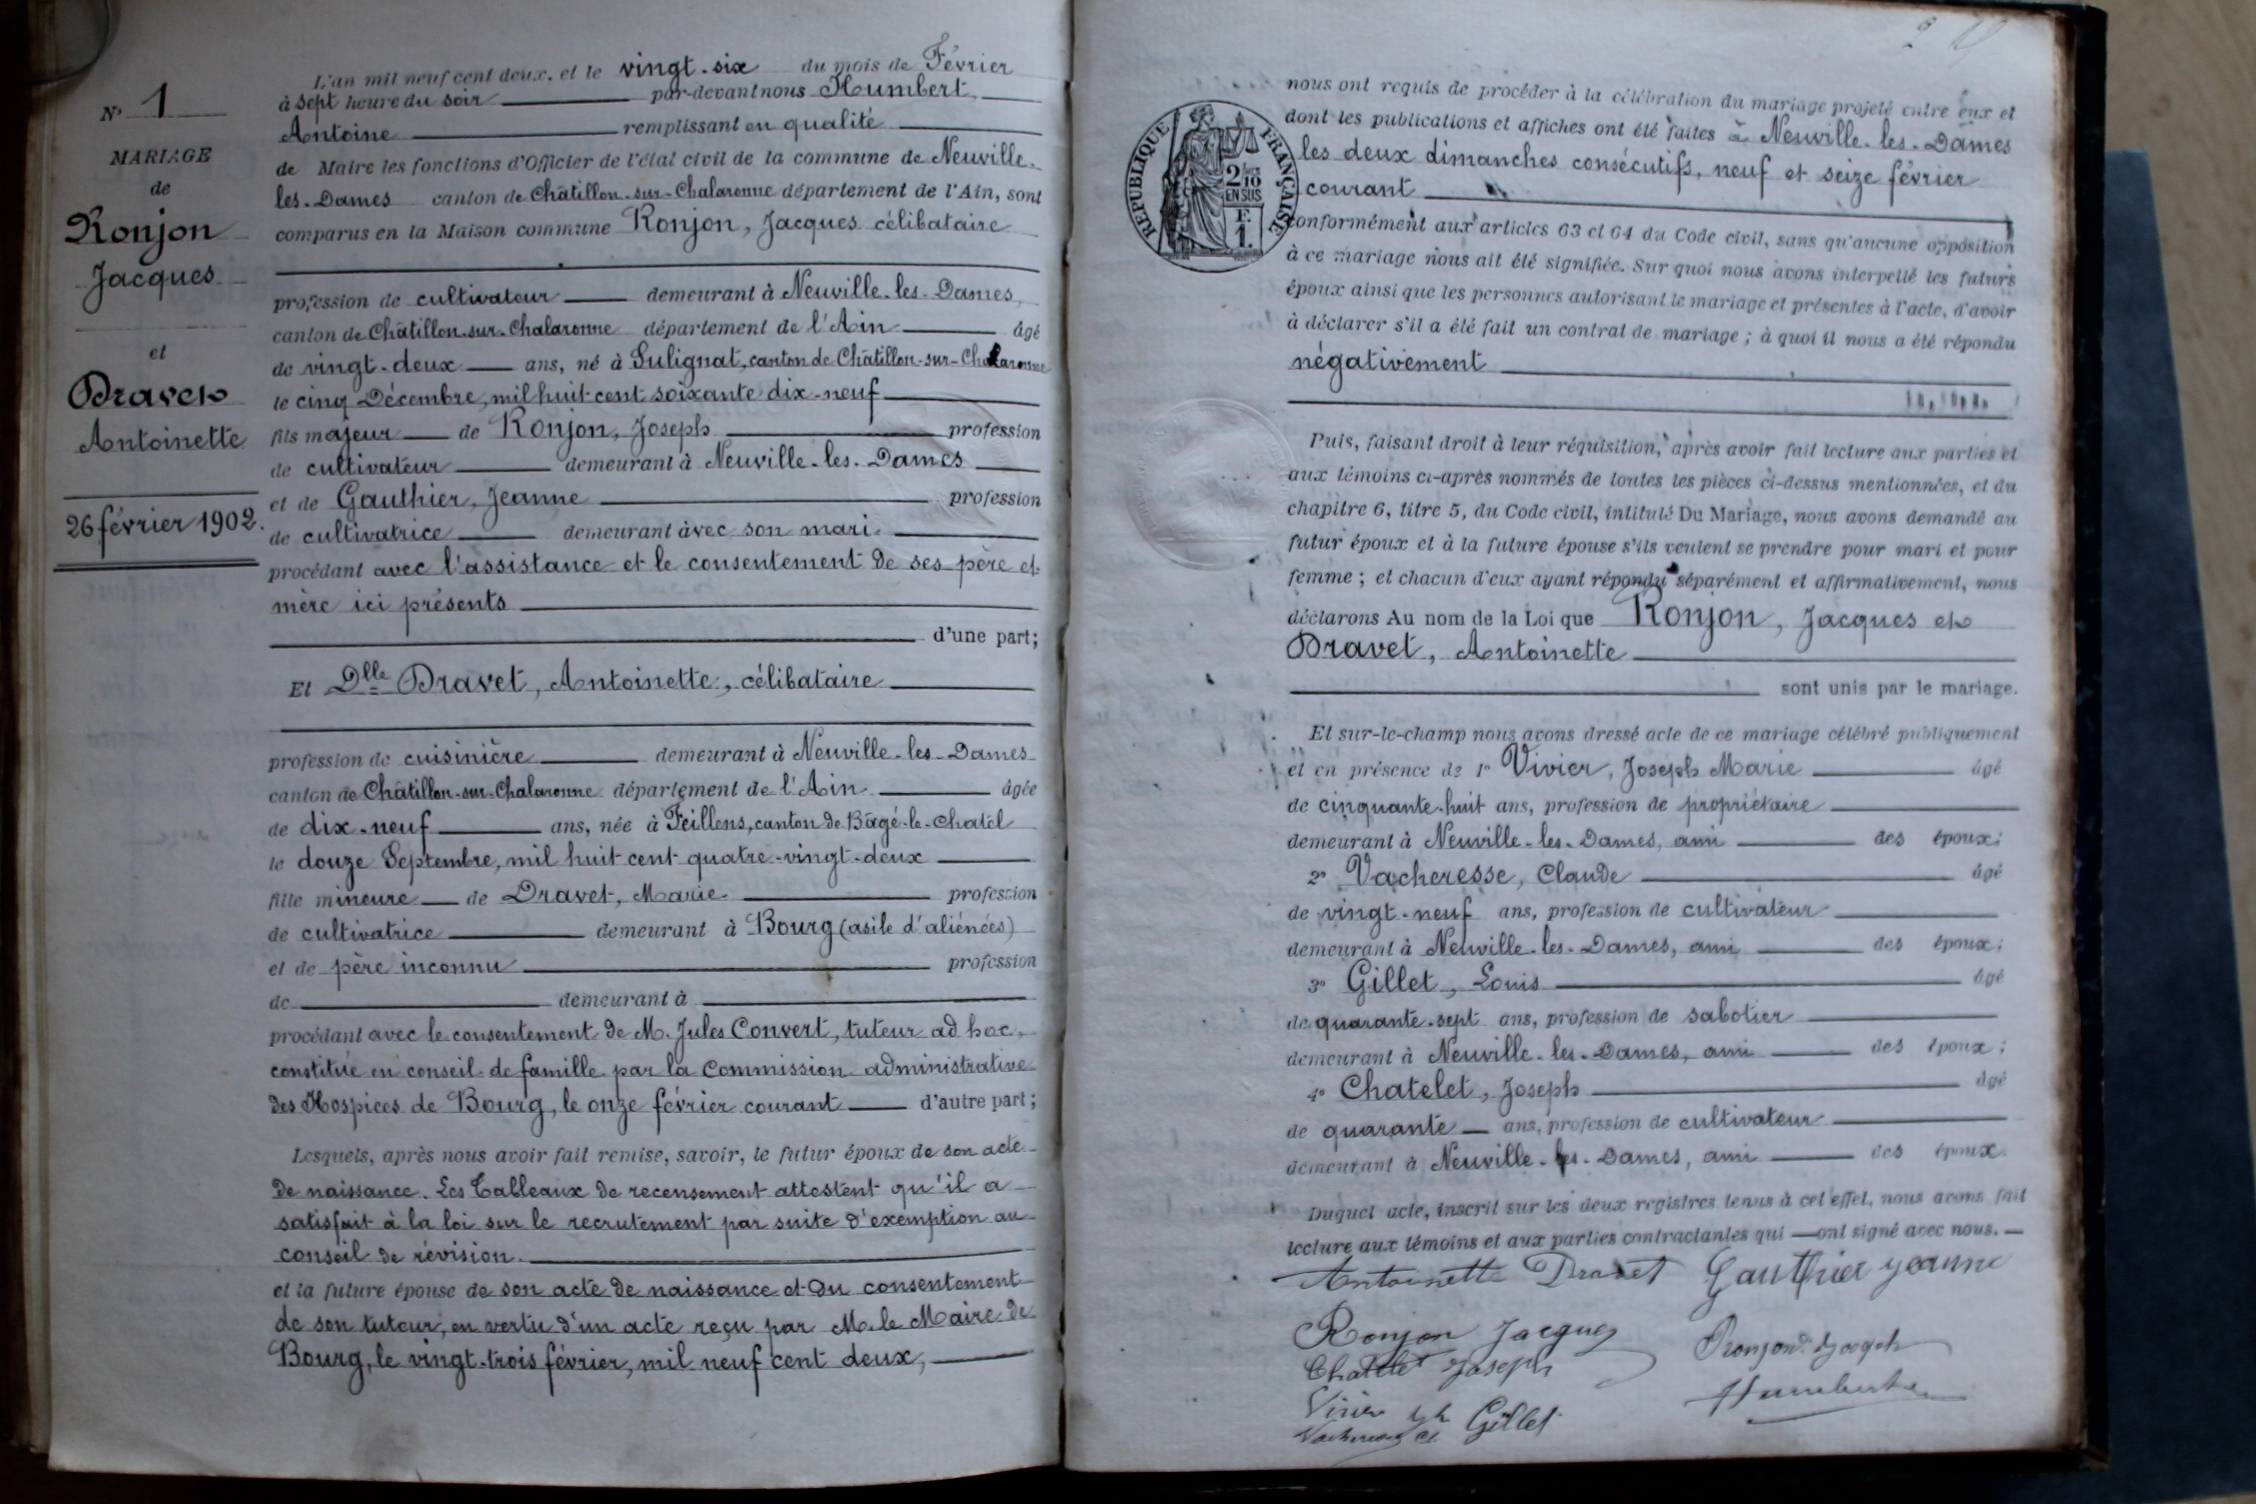 N° 1
MARIAGE
de
Ronjon
Jacques
et
Dravet
Antoinette
26 février 1902.
L'an mil neuf cent deux, et le vingt-six du mois de Février
à sept heure du soir par-devant nous Humbert
Antoine remplissant en qualité
de Maire les fonctions d'Officier de l'état civil de la commune de Neuville-
les-Dames canton de Châtillon-sur-Chalaronne département de l'Ain, sont
comparus en la Maison commune Ronjon, Jacques célibataire
profession de cultivateur demeurant à Neuville-les-Dames,
canton de Châtillon-sur-Chalaronne département de l'Ain âgé
de vingt-deux ans, né à Sulignat, canton de Châtillon-sur-Chalaronne
le cinq Décembre, mil huit cent soixante dix-neuf
fils majeur de Ronjon, Joseph profession
de cultivateur demeurant à Neuville-les-Dames
et de Gauthier, Jeanne profession
de cultivatrice demeurant avec son mari.
procédant avec l'assistance et le consentement de ses père et
mère ici présents
d'une part;
Et Dlle Dravet, Antoinette, célibataire
profession de cuisinière demeurant à Neuville-les-Dames
canton de Châtillon-sur-Chalaronne département de l'Ain âgée
de dix-neuf ans, née à Feillens, canton de Bâgé-le-Chatel
le douze Septembre, mil huit cent quatre-vingt-deux
fille mineure de Dravet, Marie profession
de cultivatrice demeurant à Bourg (asile d'aliénées)
et de père inconnu profession
de demeurant à
procédant avec le consentement de M. Jules Convert, tuteur ad hoc,
constitué en conseil de famille par la Commission administrative
des Hospices de Bourg, le onze février courant d'autre part;
Lesquels, après nous avoir fait remise, savoir, le futur époux de son acte
de naissance. Les Tableaux de recensement attestent qu'il a
satisfait à la loi sur le recrutement par suite d'exemption au
conseil de révision.
et la future épouse de son acte de naissance et du consentement
de son tuteur, en vertu d'un acte reçu par M. le Maire de
Bourg, le vingt-trois février, mil neuf cent deux,
RÉPUBLIQUE FRANÇAISE
2/10
EN SUS
F.
1.
nous ont requis de procéder à la célébration du mariage projeté entre eux et
dont les publications et affiches ont été faites à Neuville-les-Dames
les deux dimanches consécutifs, neuf et seize février
courant
conformément aux articles 63 et 64 du Code civil, sans qu'aucune opposition
à ce mariage nous ait été signifiée. Sur quoi nous avons interpellé les futurs
époux ainsi que les personnes autorisant le mariage et présentes à l'acte, d'avoir
à déclarer s'il a été fait un contrat de mariage ; à quoi il nous a été répondu
négativement
Puis, faisant droit à leur réquisition, après avoir fait lecture aux parties et
aux témoins ci-après nommés de toutes les pièces ci-dessus mentionnées, et du
chapitre 6, titre 5, du Code civil, intitulé Du Mariage, nous avons demandé au
futur époux et à la future épouse s'ils veulent se prendre pour mari et pour
femme ; et chacun d'eux ayant répondu séparément et affirmativement, nous
déclarons Au nom de la Loi que Ronjon, Jacques et
Dravet, Antoinette
sont unis par le mariage.
Et sur-le-champ nous avons dressé acte de ce mariage célébré publiquement
et en présence de 1° Vivier, Joseph Marie âgé
de cinquante-huit ans, profession de propriétaire
demeurant à Neuville-les-Dames, ami des époux;
2° Vacheresse, Claude âgé
de vingt-neuf ans, profession de cultivateur
demeurant à Neuville-les-Dames, ami des époux;
3° Gillet, Louis âgé
de quarante-sept ans, profession de sabotier
demeurant à Neuville-les-Dames, ami des époux;
4° Chatelet, Joseph âgé
de quarante ans, profession de cultivateur
demeurant à Neuville-les-Dames, ami des époux.
Duquel acte, inscrit sur les deux registres tenus à cet effet, nous avons fait
lecture aux témoins et aux parties contractantes qui ont signé avec nous.
Antoinette Dravet Gauthier Jeanne
Ronjon Jacques Ronjon Joseph
Chatelet Joseph
Humbert
Vivier Gillet
Vacheresse Cl.